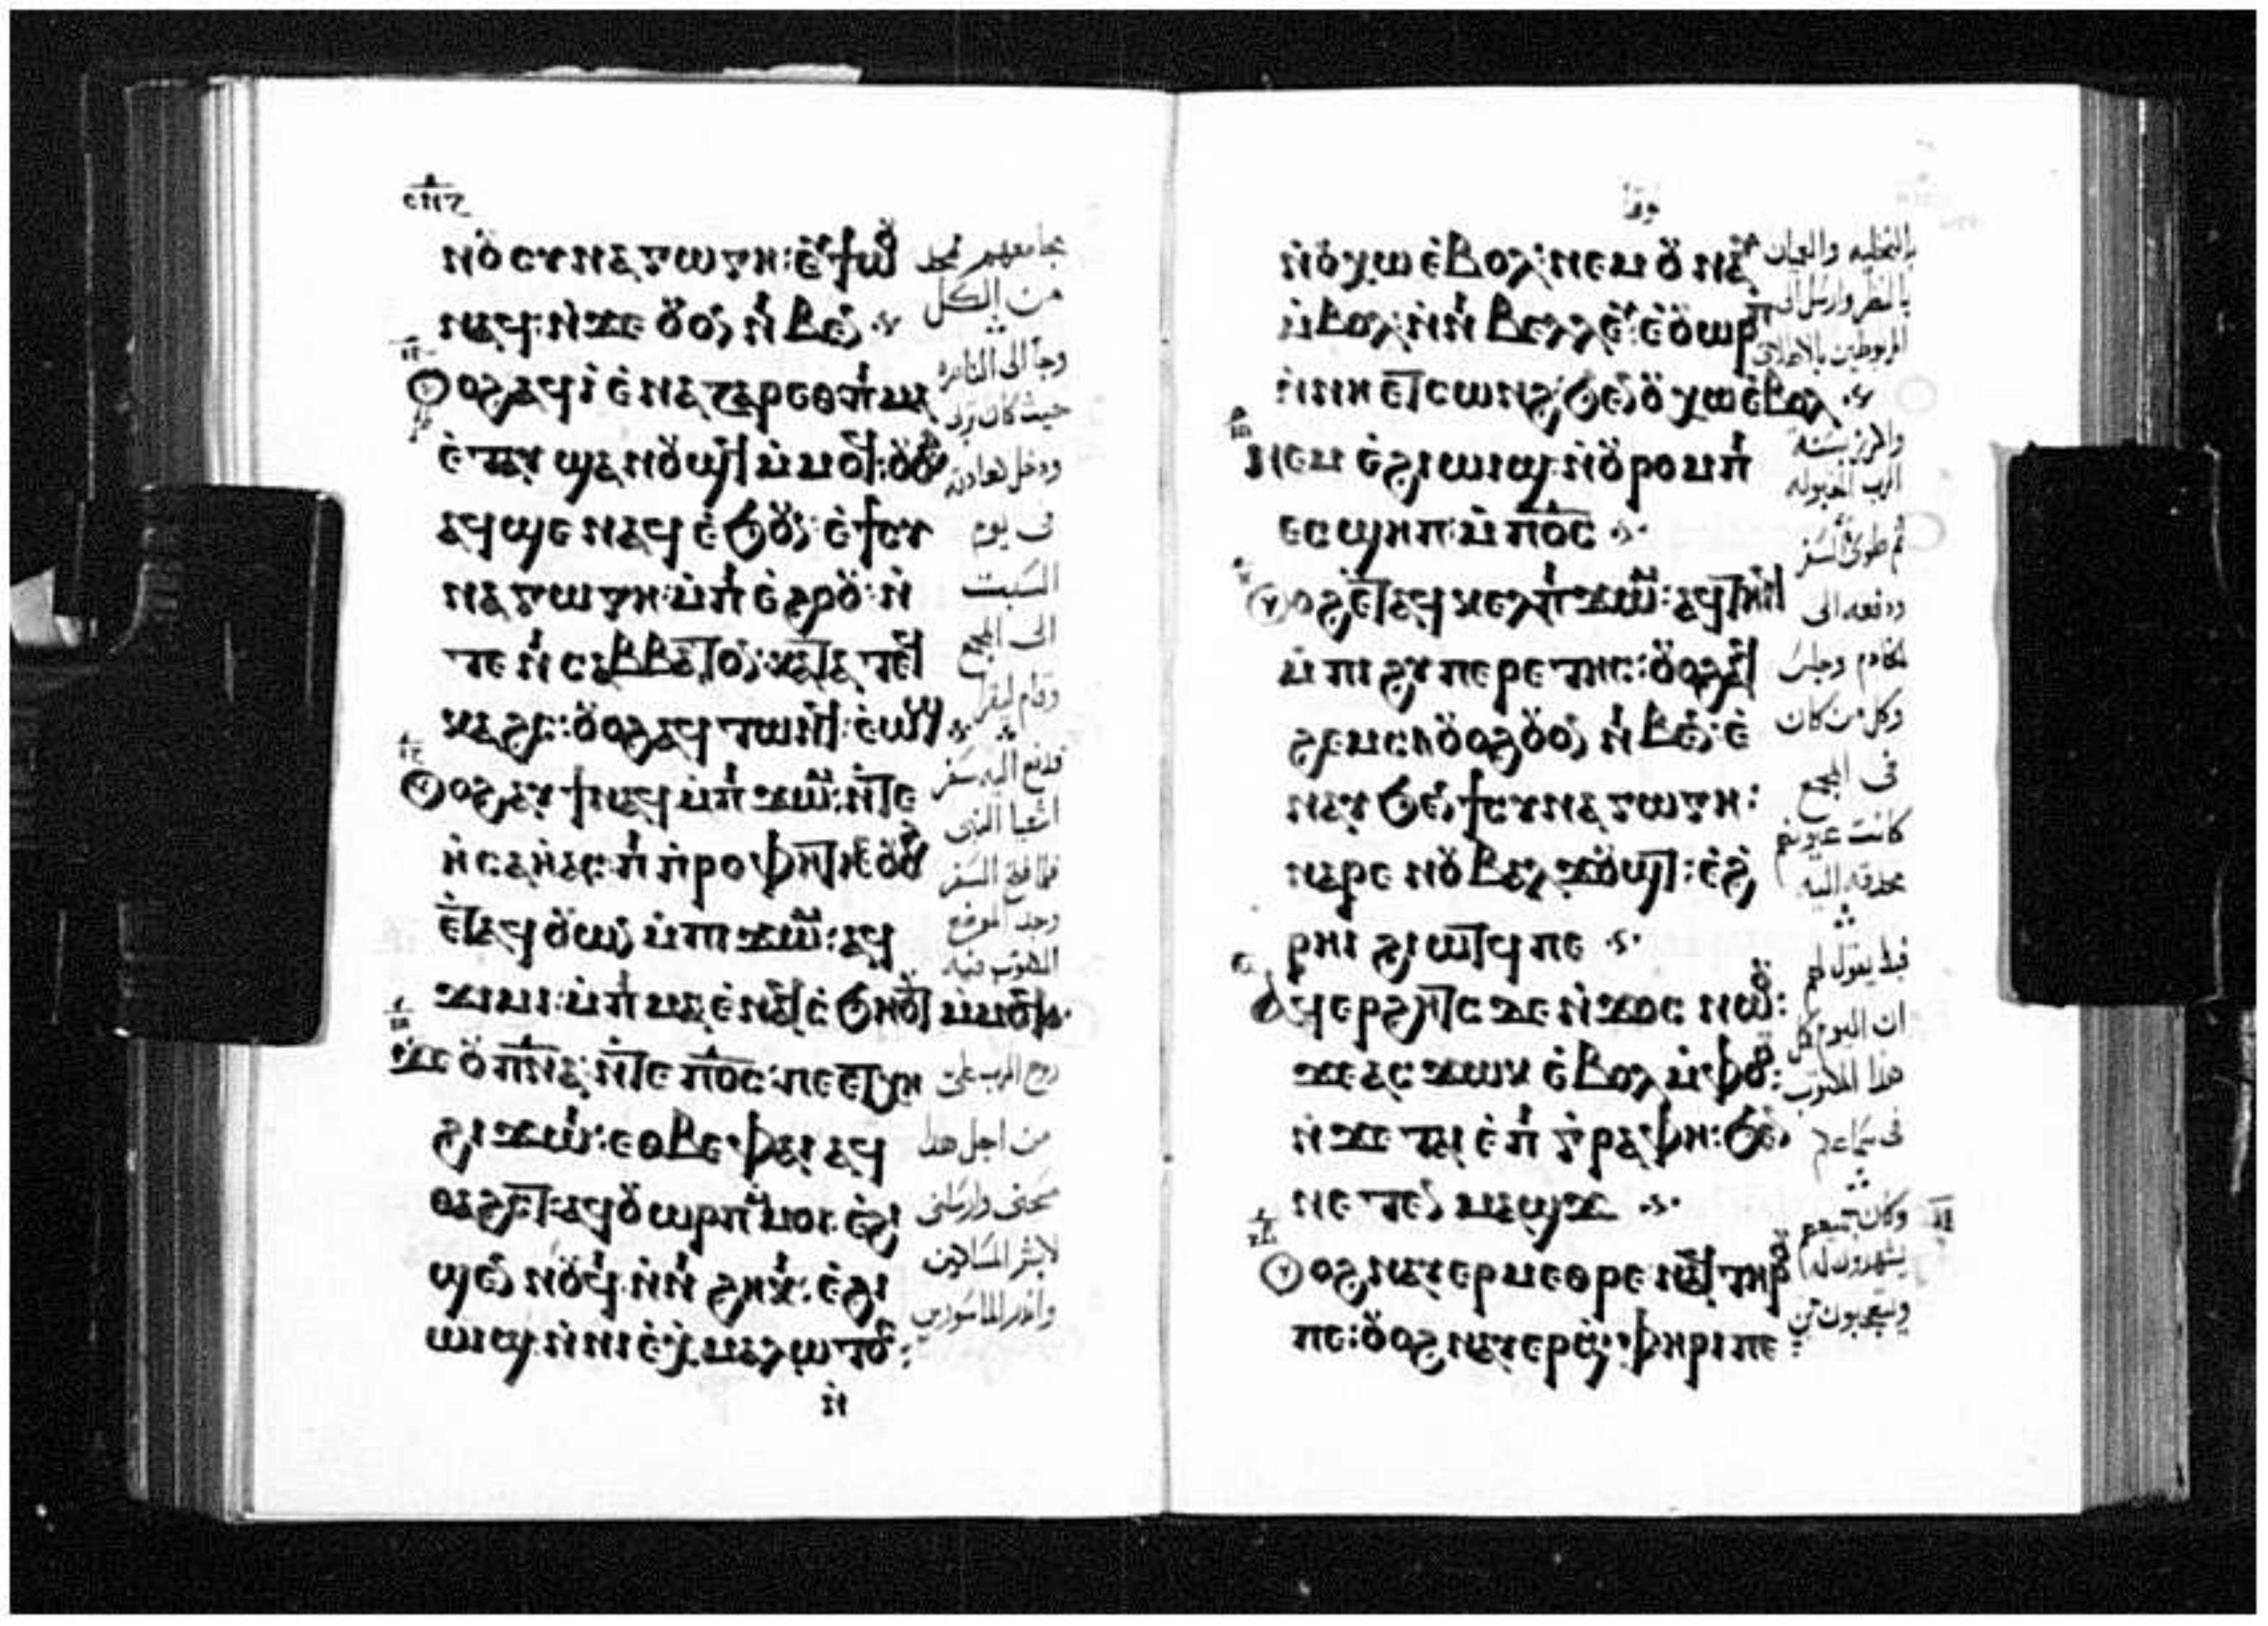 ⲛⲟⲩⲥⲩⲛⲁⲅⲱⲅⲏ: ⲉϥϯⲱⲟⲩ
ⲛⲁϥ: ⲛ̀ϫⲉ ⲟⲩⲟⲛ ⲛⲓⲃⲉⲛ
ⲟⲩⲟϩ ⲁϥⲓ̀ ⲉ̀ⲛⲁⲍⲁⲣⲉⲑ ⲡⲓⲙⲁ
ⲉ̀ⲧⲁⲩϣⲁⲛⲟⲩϣϥ ⲙ̀ⲙⲟϥ: ⲟⲩⲟϩ
ⲁϥϣⲉ ⲛⲁϥ ⲉ̀ϧⲟⲩⲛ ⲉ̀ϯⲥⲩ
ⲛⲁⲅⲱⲅⲏ: ⲙ̀ⲡⲓⲉ̀ϩⲟⲟⲩ: ⲛ̀
ⲧⲉ ⲛⲓⲥⲁⲃⲃⲁⲧⲟⲛ: ⲕⲁⲧⲁ ⲧⲉϥ
ⲕⲁϩⲥ: ⲟⲩⲟϩ ⲁϥⲧⲱⲛϥ: ⲉ̀ⲱϣ
ⲟⲩⲟϩ ⲁⲩϯ ⲛⲁϥ ⲙ̀ⲡⲓϫⲱⲙ: ⲛ̀ⲧⲉ
ⲏ̀ⲥⲁⲏ̀ⲁⲥ: ⲡⲓⲡ̀ⲣⲟⲫⲏⲧⲏⲥ ⲟⲩⲟϩ
ⲉ̀ⲧⲁϥⲟⲩⲱⲛ ⲙ̀ⲡⲓϫⲱⲙ: ⲁϥ
ϫⲓⲙⲓ: ⲙ̀ⲡⲓⲙⲁ ⲉ̀ⲛⲁϥⲥ̀ϧⲏⲟⲩⲧ ⲙ̀ⲙⲟϥ
ϫⲉ ⲟⲩⲡ̅ⲛ̅ⲁ̅: ⲛ̀ⲧⲉ ⲡ̅ⲟ̅ⲥ̅: ⲡⲉⲧⲭⲏ
ϩⲓϫⲱⲓ: ⲉⲑⲃⲉ ⲫⲁⲓ ⲁϥ
ⲑⲁϩⲥⲧ: ⲁϥⲟⲩⲱⲣⲡ ⲙ̀ⲙⲟⲓ: ⲉ̀ϩⲓ
ϣⲉⲛⲛⲟⲩϥⲓ ⲛ̀ⲛⲓϩⲏⲕⲓ: ⲉ̀ϩⲓ
ⲱⲓϣ ⲛ̀ⲛⲓⲉ̀ⲭⲙⲁⲗⲱⲧⲟⲥ:
مجامعهم يمجد
من الكل
وجا الى الناصره
حيث كان تربى
ودخل كعادته
فى يوم
السبت
الى المجمع
وقام ليقرا
فدفع اليه سفر
اشعيا النبى
فلما فتح السفر
وجد الموضع
المكتوب فيه
روح الرب على
من اجل هذا
مسحنى وارسلنى
لابشر المساكين
ⲛ̀ⲟⲩⲭⲱ ⲉ̀ⲃⲟⲗ: ⲛⲉⲙ ⲟⲩⲛⲁⲩ
ⲙ̀ⲃⲟⲗ ⲛ̀ⲛⲓⲃⲉⲗⲗⲉⲩ: ⲉ̀ⲟⲩⲱⲣⲡ
ⲛ̀ⲛⲏⲉⲧⲥⲱⲛϩ ϧⲉⲛ ⲟⲩⲭⲱ ⲉ̀ⲃⲟⲗ
ⲛⲉⲙ ⲉ̀ϩⲓⲱⲓϣ ⲛ̀ⲟⲩⲣⲟⲙⲡⲓ
ⲉⲥϣⲏⲡ: ⲙ̀ⲡ̅ⲟ̅ⲥ̅
ⲟⲩⲟϩ ⲉ̀ⲧⲁϥⲕⲉⲗ ⲡⲓϫⲱⲙ: ⲁϥⲧⲏⲓϥ
ⲙ̀ⲡⲓϩⲩⲡⲉⲣⲉⲧⲏⲥ: ⲟⲩⲟϩ ⲁϥ
ϩⲉⲙⲥⲓ ⲟⲩⲟϩ ⲟⲩⲟⲛ ⲛⲓⲃⲉⲛ: ⲉ̀
ⲛⲁⲩ ϧⲉⲛ ϯⲥⲩⲛⲁⲅⲱⲅⲏ:
ⲛⲁⲣⲉ ⲛⲟⲩⲃⲁⲗ ϫⲟⲩϣⲧ: ⲉ̀ϩ
ⲣⲏⲓ ϩⲓⲱⲧϥ ⲡⲉ
ⲁϥⲉⲣϩⲏⲧⲥ ⲇⲉ ⲛ̀ϫⲟⲥ ⲛⲱⲟⲩ:
ϫⲉ ⲁⲥϫⲱⲕ ⲉ̀ⲃⲟⲗ ⲙ̀ⲫⲟⲟⲩ:
ⲛ̀ϫⲉ ⲧⲁⲓ ⲉ̀ⲡⲓⲅ̀ⲣⲁⲫⲏ: ϧⲉⲛ
ⲛⲉⲧⲉⲛ ⲙⲁϣϫ
ⲟⲩⲟϩ ⲛⲁⲩⲉⲣⲙⲉⲑⲣⲉ ⲛⲁϥ ⲧⲏⲣⲟⲩ
ⲡⲉ: ⲟⲩⲟϩ ⲛⲁⲩⲉⲣϣ̀ⲫⲏⲣⲓ ⲡⲉ:
بالتخليه والعميان
بالنظر وارسل
المربوطين
سنة
الرب المقبوله
ثم طوى السفر
ودفعه الى
الخادم وجلس
وكل من كان
فى المجمع
كانت عيونهم
محدقه اليه
يقول لهم
ان اليوم كمل
هذا المكتوب
وكان جميعهم
يشهدون له